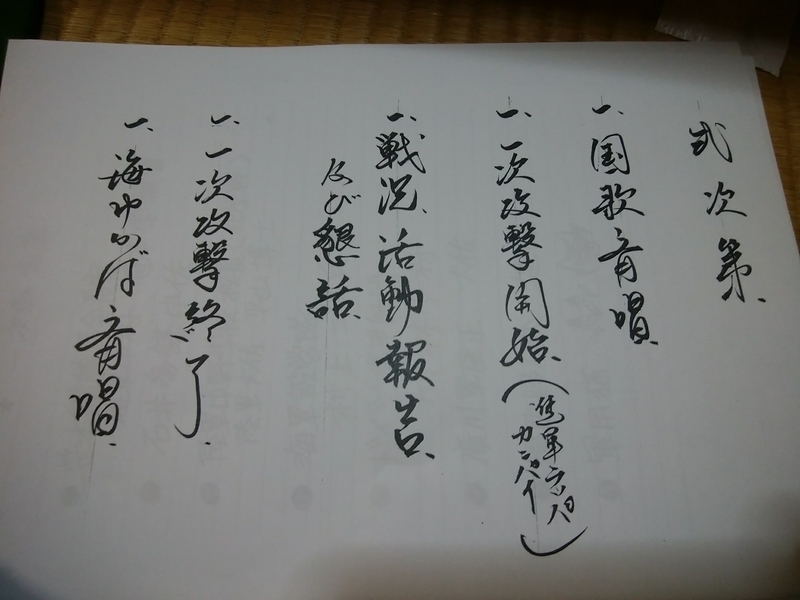 式次第、
一、国歌斉唱、
一、一次攻撃開始、(進軍ラッパ
カンパイ)
一、戦況、活動報告、
及び懇話、
一、一次攻撃終了、
一、海ゆかば斉唱、